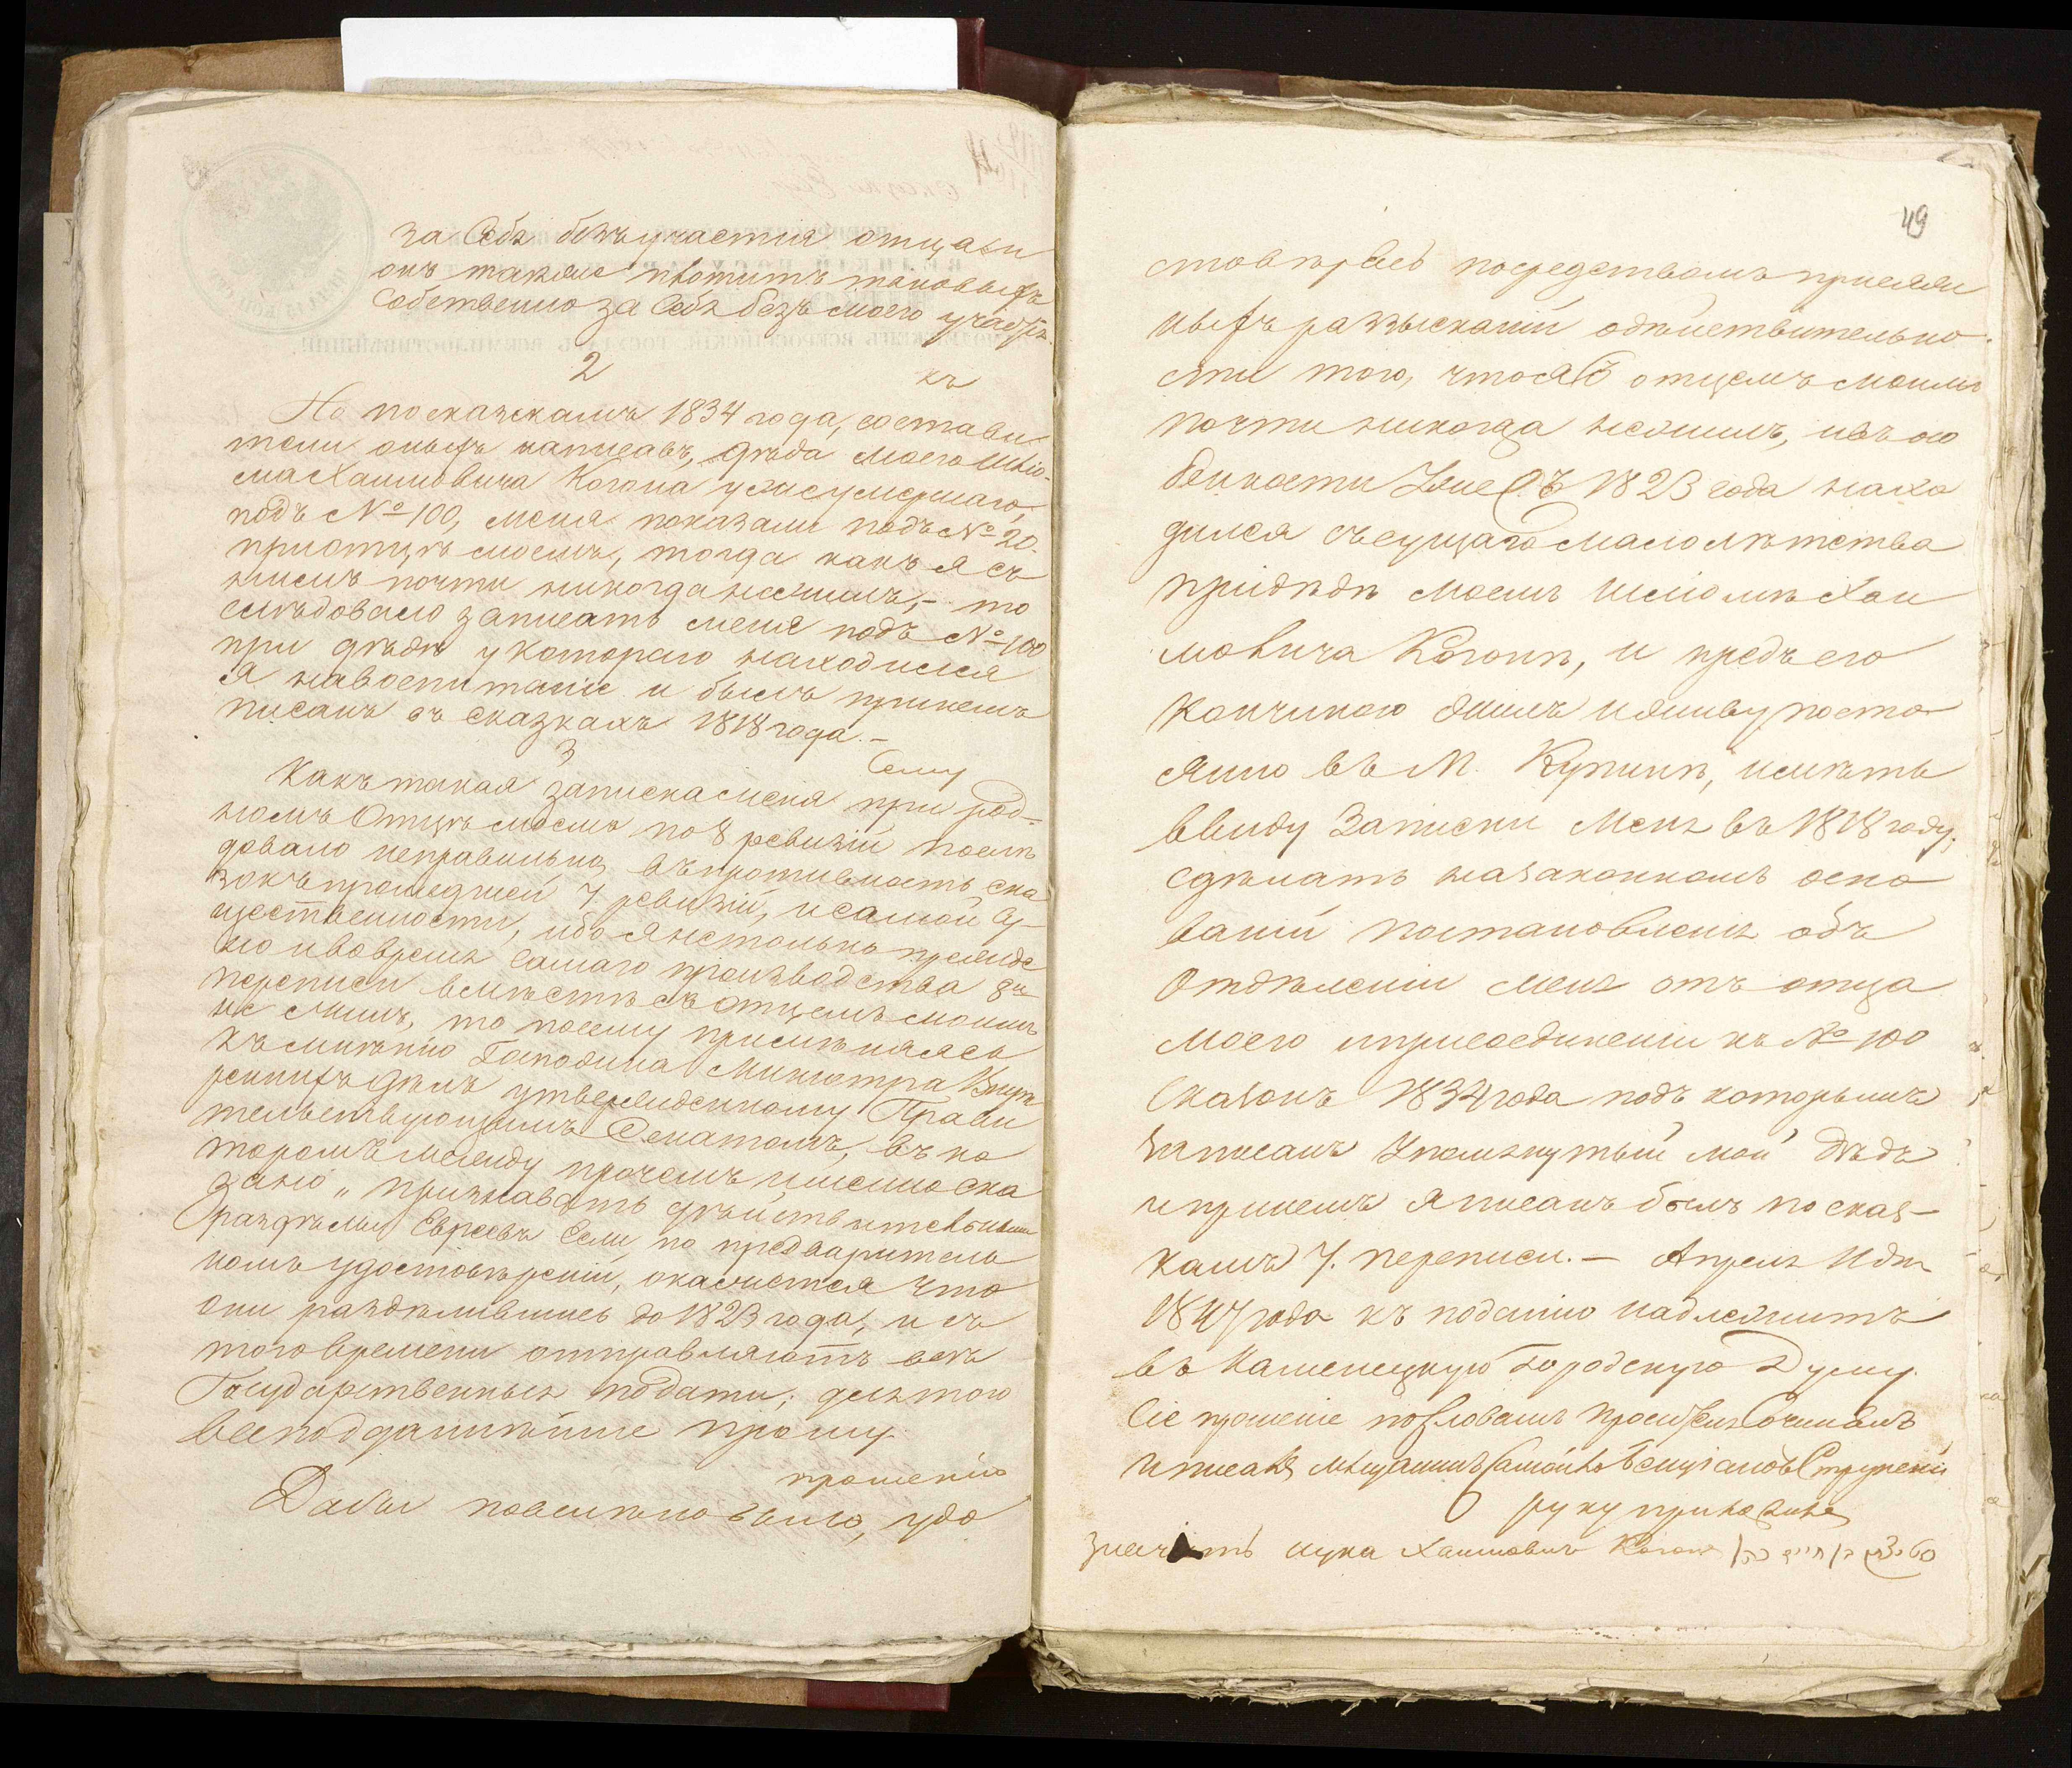 за себя безъ участія отца а и
онъ также плотитъ таковыхъ
собственно за себя безъ моего участія.
2
къ
Но по сказкамъ 1834 года, состави
тели оныхъ написавъ, дѣда моего Шліо-
ма Хаимовича Когона уже умершаго,
подъ № 100, меня показали подъ № 20.
при отцѣ моемъ, тогда какъ я съ
нимъ почти никогда нежилъ, - то
слѣдовало записать меня подъ № 100
при дѣдѣ у котораго находился
я на воспитаніе и былъ при немъ
писанъ въ сказкахъ 1818 года. -
3
сему
Какъ такая записка меня при род-
номъ отцѣ моемъ по 8 ревизіи послѣ
довало неправильно, въ противность ска
зокъ прошедшей 7. ревизіи, и самой су-
щественности, ибо я нетолько прежде
но и во время самаго производства 8й
переписи вмѣстѣ съ отцемъ моимъ
не жилъ, то посему примѣняясь
къ мнѣнію Господина Министра Внут
реннихъ дѣлъ утвержденному Прави
тельствующимъ Сенатомъ, въ ко
торомъ между прочемъ именно ска
зано „ признавать дѣйствительными
раздѣлы Евреевъ если по предваритель
номъ удостовѣреніи, окажется что
они раздѣлившись до 1823 года, и съ
того времени отправляютъ всѣ
Государственныя подати; для того
всеподданнѣйше прошу
прошенію
Дабы повелѣно было, удо
49
стовѣрясь посредствомъ приселян
ныхъ разысканій одѣйствительно-
сти того, что я съ отцемъ моимъ
почти никогда нежилъ, ивъ осо
бенности уже съ 1823 года нахо
дился съ сущаго малолѣтства
придѣдѣ моемъ Шліомѣ Хаи
мовича Когонѣ, и предъ его
кончиною жилъ и живу посто
янно въ М. Купинѣ, имѣть
ввиду записки меня въ 1818 году,
сдѣлать на законномъ осно
ваніи постановленія объ
отдѣленіи меня отъ отца
моего и присоединеніи къ № 100
сказокъ 1834 года подъ которымъ
записанъ упомянутый мой дѣдъ
и при немъ я писанъ былъ по сказ-
камъ 7. переписи. - Апреля дня
1847 года къ поданію надлежитъ
въ Каменецкую Городскую Думу.
Сіе прошеніе по словамъ просителя сочинялъ
и писалъ мѣщанинъ
руку приложилъ
Хаимовичъ Когонъ